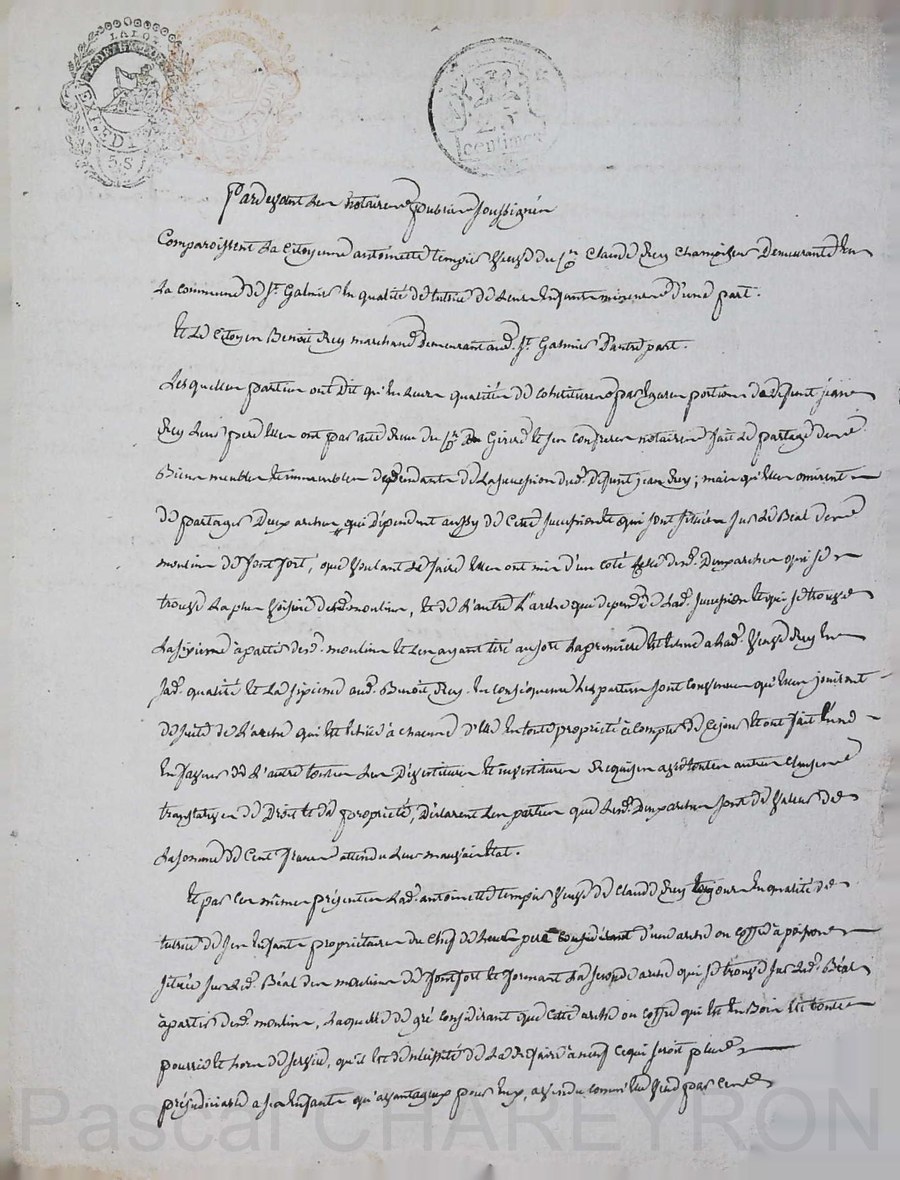 LA LOI
EXPEDIT
25
centimes
Pardevant Les notaires public soussignés
Comparoissent La Citoyenne antoinette tempier Veuve du Cn Claude Rey Chamoiseur Demeurante En
La commune de St. Galmier En qualité de tutrice de Leurs Enfants mineurs d'une part.
Et Le Citoyen Benoit Rey marchand Demeurant aud. St. Galmier D'autre part.
Lesquelles parties ont dit qu'en Leurs qualités de cohéritiers par Egales portions de défunt jean
Rey Leur pere Elles ont par acte Reçu du Cn Girard Et son confrere notaires fait Le partage des
Biens meubles Et immeubles dépendants de La succession dud. défunt jean Rey; mais qu'elles omirent
de partager Deux arches qui dépendent aussy de Cette succession Et qui sont situées sur Le Béal des
moulins de font fort, que Voulant Le faire Elles ont mis d'un coté Celle desd. Deux arches qui se
trouve La plus Voisine desd. moulins, Et de L'autre L'arche qui depend de Lad. succession Et qui se trouve
La sixieme à partir desd. moulins Et Les ayant tiré au sort La premiere Est Echue a Lad. Veuve Rey En
sad. qualité Et La sixieme aud. Benoit Rey. En conséquence Les parties sont convenues qu'elles jouiront
de suite de L'arche qui Est Echue à chacune d'elle En toute propriété à compter de Ce jour Et ont fait L'une
En faveur de L'autre toutes Les Dévestitures Et investitures Requises avec toutes autres Clauses
translatives de Droit Et de propriété, Déclarent Les parties que Lesd. Deux arches sont de Valeur de
La somme de Cent francs attendu Leur mauvais Etat.
Et par Ces mêmes présentes Lad. antoinette tempier Veuve de Claude Rey toujours En qualité de
tutrice de ses Enfants propriétaires du Chef de Leur pere d'une arche ou coffre à poissons
située sur Led. Béal des moulins de fontfort Et formant La seconde arche qui se trouve sur Led. Béal
à partir desd. moulins, Laquelle de gré considérant que Cette arche ou coffre qui Est En Bois Est toute
pourrie Et hors de service, qu'il Est de nécessité de La Refaire à neuf Ce qui seroit plus
préjudiciable a ses Enfants qu'avantageux pour Eux, a vendu comme Elle Vend par Ces
Pascal CHAREYRON